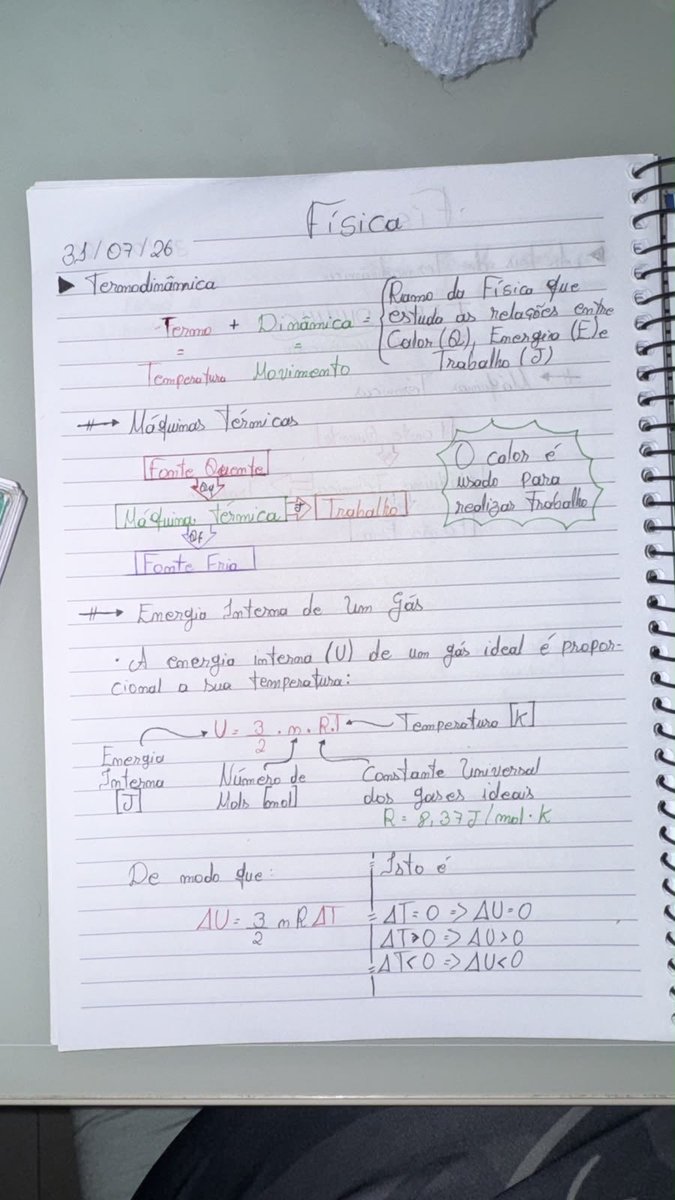 Física
31/07/26
▶ Termodinâmica
Termo + Dinâmica =
= =
Temperatura Movimento
Ramo da Física que
estuda as relações entre
Calor (Q), Energia (E) e
Trabalho (J)
Máquinas Térmicas
Fonte Quente
Qq
Máquina Térmica J Trabalho
Qf
Fonte Fria
O calor é
usado para
realizar trabalho
Energia Interna de Um Gás
· A energia interna (U) de um gás ideal é propor-
cional a sua temperatura:
U = 3/2 . n . R.T
Temperatura [K]
Energia
Interna
[J]
Número de
Mols [mol]
Constante Universal
dos gases ideais
R = 8,37 J/mol·K
De modo que:
ΔU = 3/2 n R ΔT
Isto é
= ΔT = 0 => ΔU = 0
ΔT > 0 => ΔU > 0
= ΔT < 0 => ΔU < 0